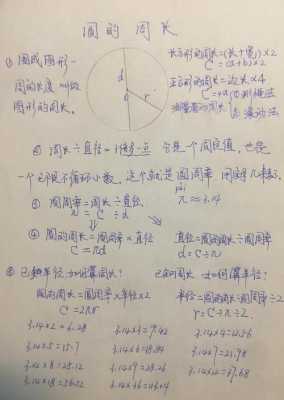 圆的周长
① 围成图形一
周的长度叫做
图形的周长。
d
r
长方形的周长=(长+宽)×2
C=(a+b)×2
正方形的周长=边长×4
C=4a
① 绕绳法
② 滚动法
② 周长÷直径=3倍多一点 它是一个固定值,也是
一个无限不循环小数,这个就是圆周率
π≈3.14
③ 圆周率=圆的周长÷直径
π = C ÷ d
④ 圆的周长=圆周率×直径
C=πd
直径=圆的周长÷圆周率
d=C÷π
⑤ 已知半径,如何算周长?
已知周长,如何算半径?
圆的周长=圆周率×半径×2
C=2πr
半径=圆的周长÷圆周率÷2
r=C÷π÷2
3.14×2=6.28 3.14×3=9.42 3.14×4=12.56
3.14×5=15.7 3.14×6=18.84 3.14×7=21.98
3.14×8=25.12 3.14×9=28.26 3.14×12=37.68
3.14×18=56.52